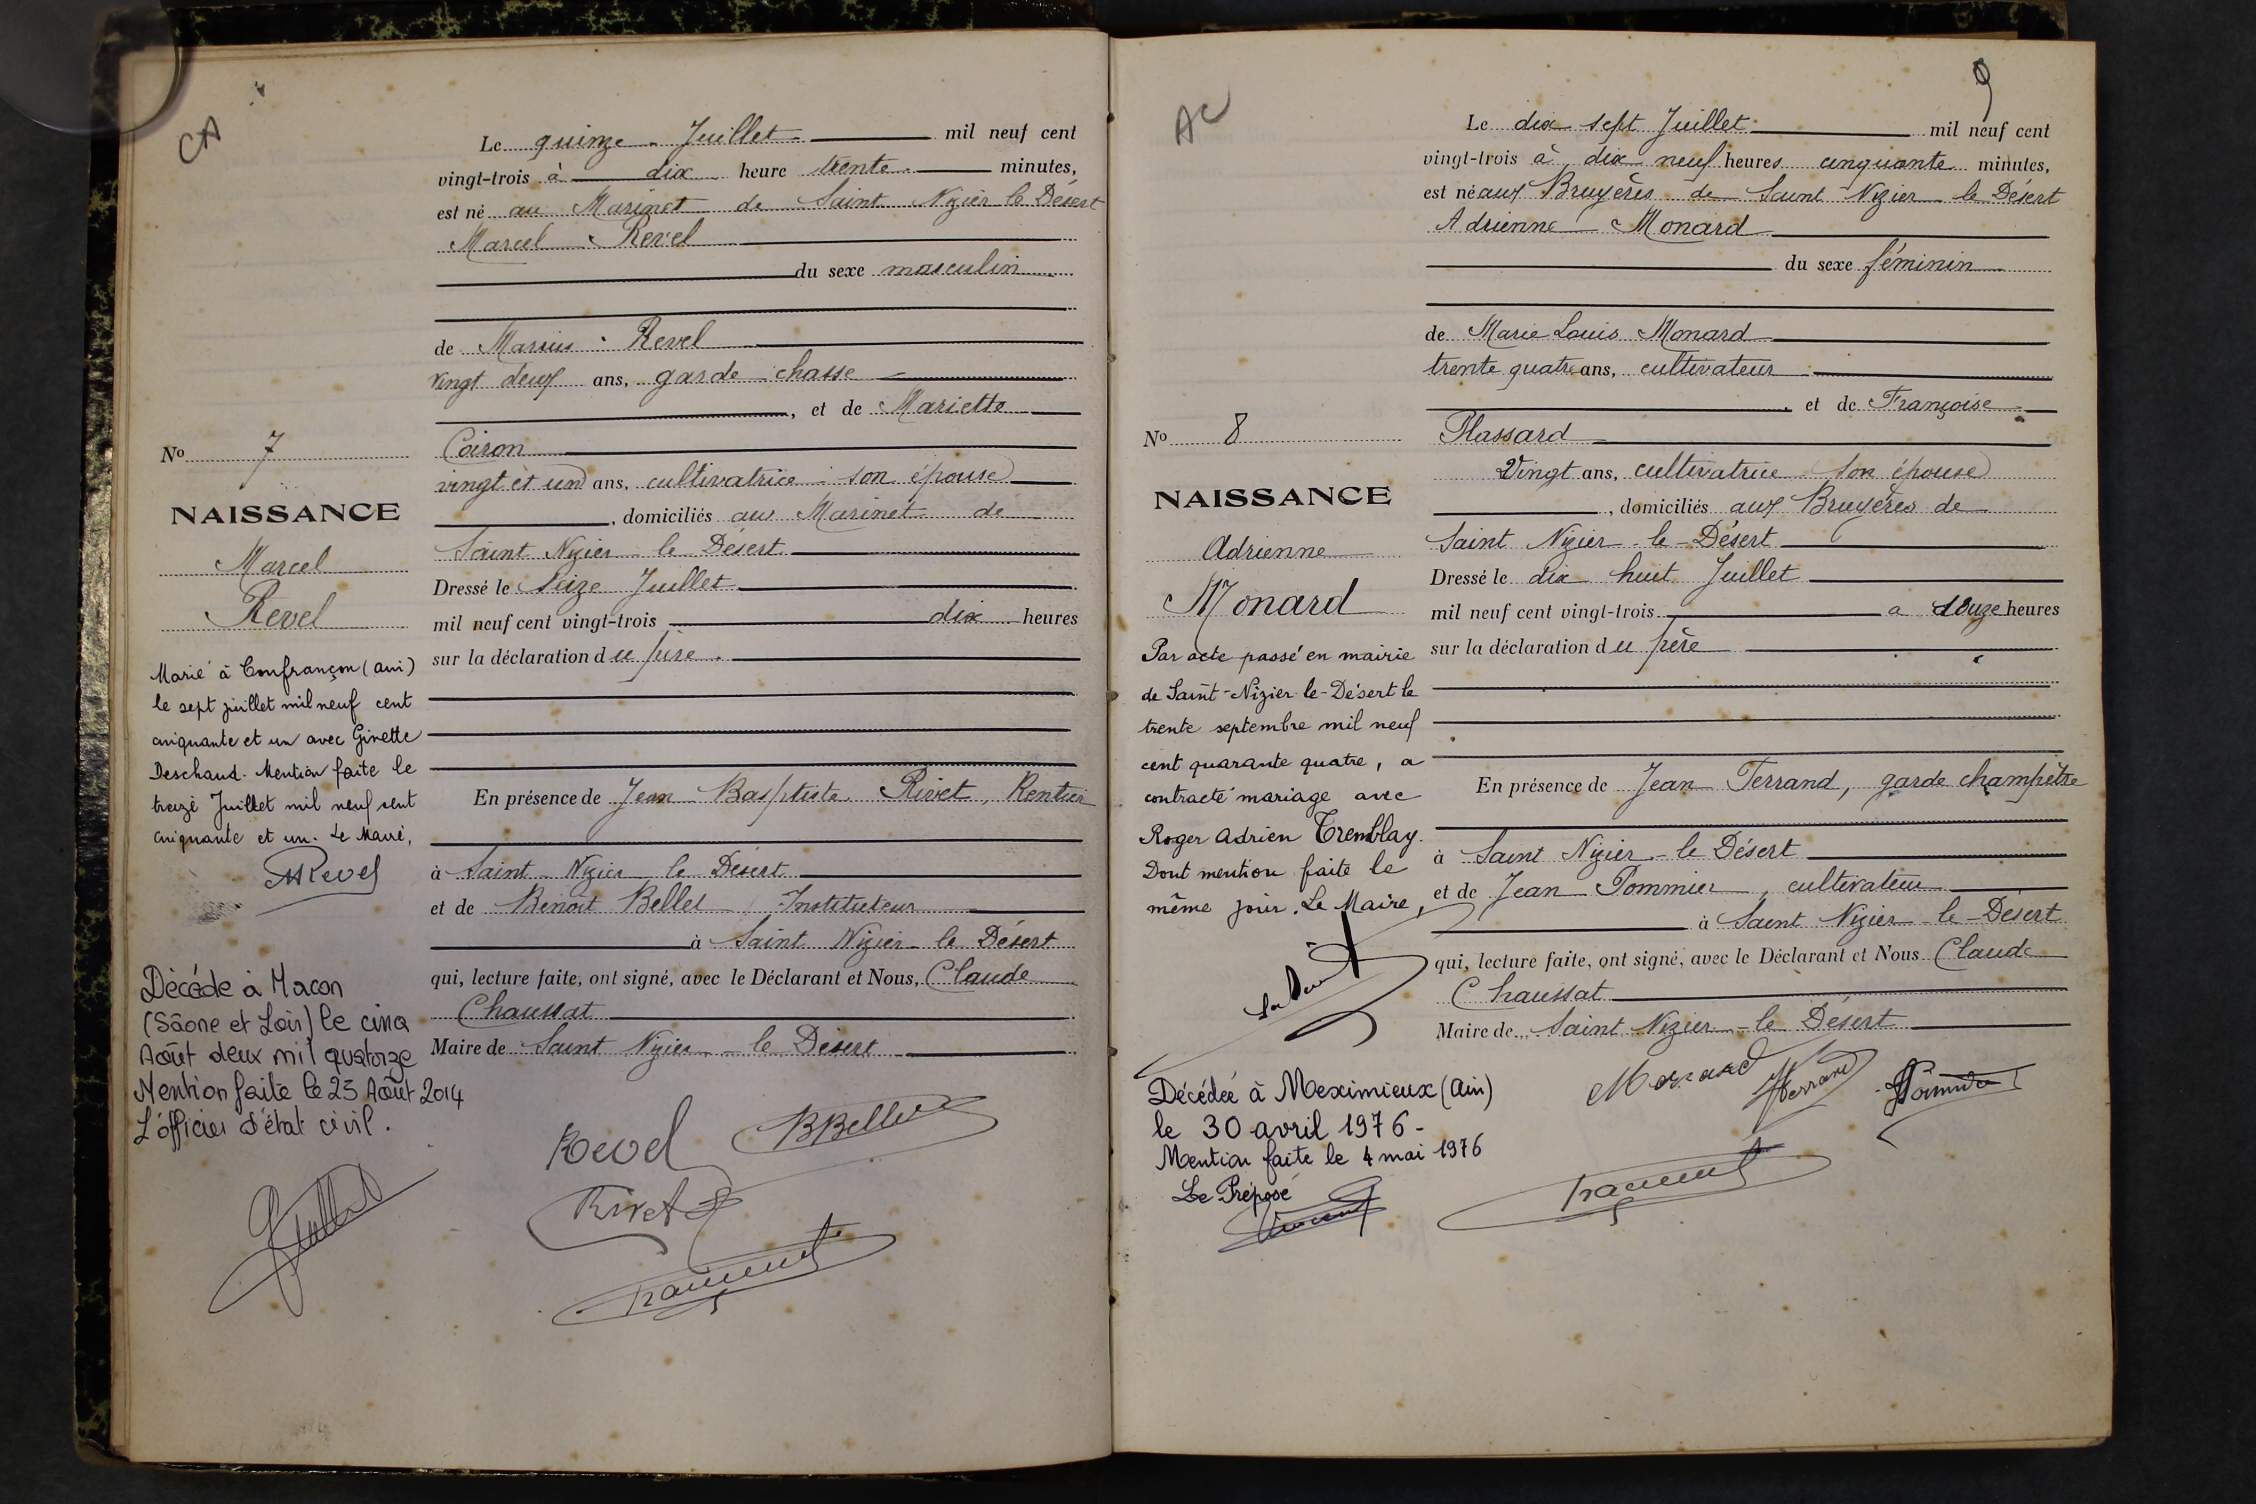 CA
Le quinze Juillet mil neuf cent
vingt-trois à dix heure trente minutes,
est né au Marinet de Saint Nizier le Désert
Marcel Revel
du sexe masculin
de Marius Revel
vingt deux ans, garde chasse
, et de Mariette
Coiron
vingt et un ans, cultivatrice son épouse
, domiciliés au Marinet de
Saint Nizier le Désert
Dressé le Seize Juillet
mil neuf cent vingt-trois dix heures
sur la déclaration du père
En présence de Jean Basptiste Rivet, Rentier
à Saint Nizier le Désert
et de Benoit Bellet Instituteur
à Saint Nizier le Désert
qui, lecture faite, ont signé, avec le Déclarant et Nous, Claude
Chaussat
Maire de Saint Nizier le Désert
Revel
BBellet
Rivet
No 7
NAISSANCE
Marcel
Revel
Marié à Confrançon (ain)
le sept juillet mil neuf cent
cinquante et un avec Ginette
Deschaud. Mention faite le
treize Juillet mil neuf cent
cinquante et un. Le Maire,
MRevel
Décéde à Macon
(Sâone et Loir) le cinq
Août deux mil quatorze
Mention faite le 25 Août 2014
L'officier d'état civil.
AC
9
Le dix sept Juillet mil neuf cent
vingt-trois à dix neuf heures cinquante minutes,
est né aux Bruyères de Saint Nizier le Désert
Adrienne Monard
du sexe féminin
de Marie Louis Monard
trente quatre ans, cultivateur
, et de Françoise
Plassard
Vingt ans, cultivatrice son épouse
, domiciliés aux Bruyères de
Saint Nizier le Désert
Dressé le dix huit Juillet
mil neuf cent vingt-trois a douze heures
sur la déclaration du père
En présence de Jean Ferrand, garde champêtre
à Saint Nizier le Désert
et de Jean Pommier, cultivateur
à Saint Nizier le Désert
qui, lecture faite, ont signé, avec le Déclarant et Nous Claude
Chaussat
Maire de Saint Nizier le Désert
Monard
Ferrand
Pommier
No 8
NAISSANCE
Adrienne
Monard
Par acte passé en mairie
de Saint-Nizier-le-Désert le
trente septembre mil neuf
cent quarante quatre, a
contracté mariage avec
Roger Adrien Tremblay.
Dont mention faite le
même jour. Le Maire,
Décédée à Meximieux (Ain)
le 30 avril 1976 -
Mention faite le 4 mai 1976
Le Préposé